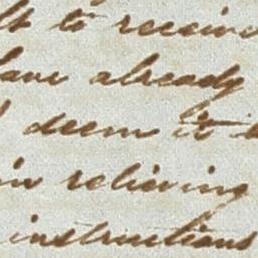 to receive
have already
deem it
in relieving
instructions